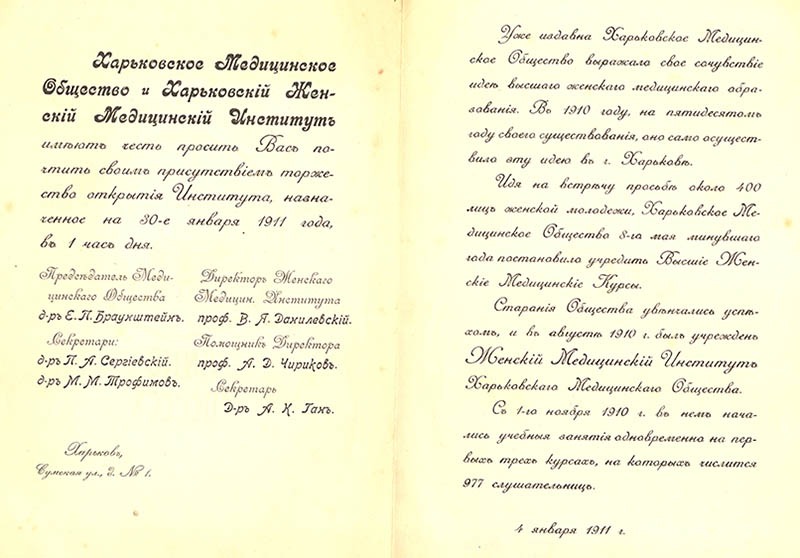 Харьковское Медицинское
Общество и Харьковскій Жен-
скій Медицинскій Институтъ
имѣютъ честь просить Васъ по-
чтить своимъ присутствіемъ торже-
ство открытія Института, назна-
ченное на 30-е января 1911 года,
въ 1 часъ дня.
Предсѣдатель Меди-
цинскаго Общества
д-ръ Е. П. Браунштейнъ.
Секретари:
д-ръ П. А. Сергіевскій.
д-ръ М. М. Трофимовъ.
Директоръ Женскаго
Медицин. Института
проф. В. Я. Данилевскій.
Помощникъ Директора
проф. А. Д. Чириковъ.
Секретарь
Д-ръ А. К. Ганъ.
Харьковъ,
Сумская ул., д. № 1.
Уже издавна Харьковское Медицин-
ское Общество выражало свое сочувствіе
идеѣ высшаго женскаго медицинскаго обра-
зованія. Въ 1910 году, на пятидесятомъ
году своего существованія, оно само осущест-
вило эту идею въ г. Харьковѣ.
Идя на встрѣчу просьбѣ около 400
лицъ женской молодежи, Харьковское Ме-
дицинское Общество 8-го мая минувшаго
года постановило учредить Высшіе Жен-
скіе Медицинскіе Курсы.
Старанія Общества увѣнчались успѣ-
хомъ, и въ августѣ 1910 г. былъ учрежденъ
Женскій Медицинскій Институтъ
Харьковскаго Медицинскаго Общества.
Съ 1-го ноября 1910 г. въ немъ нача-
лись учебныя занятія одновременно на пер-
выхъ трехъ курсахъ, на которыхъ числится
977 слушательницъ.
4 января 1911 г.